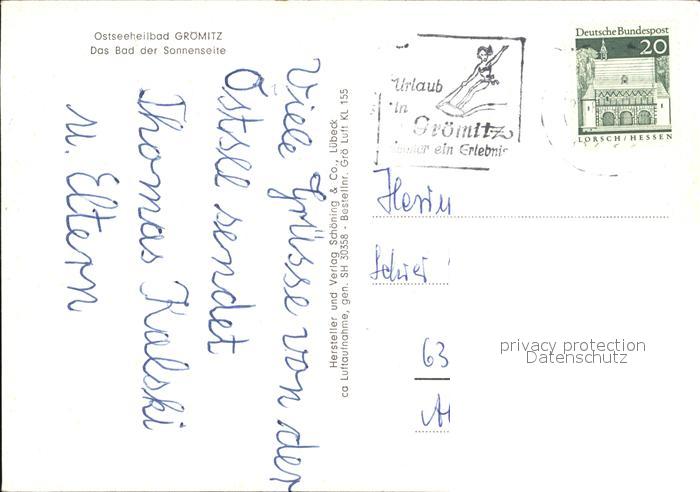 Ostseeheilbad GRÖMITZ
Das Bad der Sonnenseite
Viele Grüsse von der
Ostsee sendet
Thomas Kalski
u. Eltern
Hersteller und Verlag Schöning & Co., Lübeck
ca Luftaufnahme, gen. SH 30358 - Bestellnr. Grö Luft KL 155
Urlaub
in
Grömitz
ein Erlebnis
Deutsche Bundespost
20
LORSCH/HESSEN
Herrn
63
privacy protection
Datenschutz